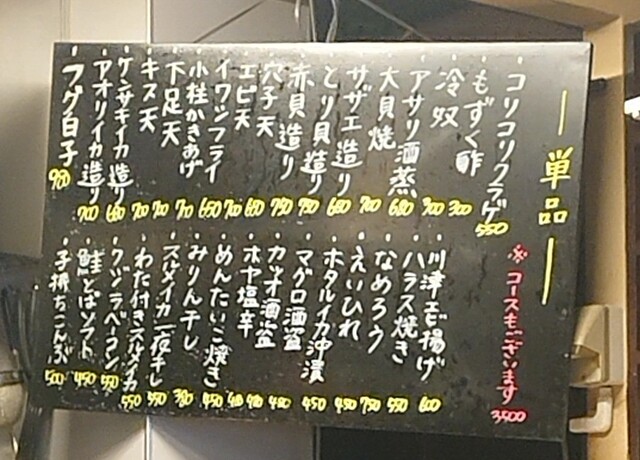 単品
※コースもございます
3500
コリコリクラゲ 550
もずく酢 300
冷奴 300
アサリ酒蒸 680
大貝焼 700
サザエ造り 680
とり貝造り 750
赤貝造り 750
穴子天 680
エビ天 700
イワシフライ 650
小柱かきあげ 700
下足天 700
キス天 700
ケンサキイカ造り 680
アオリイカ造り 700
フグ白子 980
川津エビ揚げ 600
ハラス焼き 550
なめろう 750
えいひれ 450
ホタルイカ沖漬 450
マグロ酒盗 480
カツオ酒盗 480
ホヤ塩辛 480
めんたいこ焼き 450
みりん干し 380
スルメイカ一夜干し 550
わた付きスルメイカ 550
クジラベーコン 550
鮭とばソフト 450
子持ちこんぶ 500